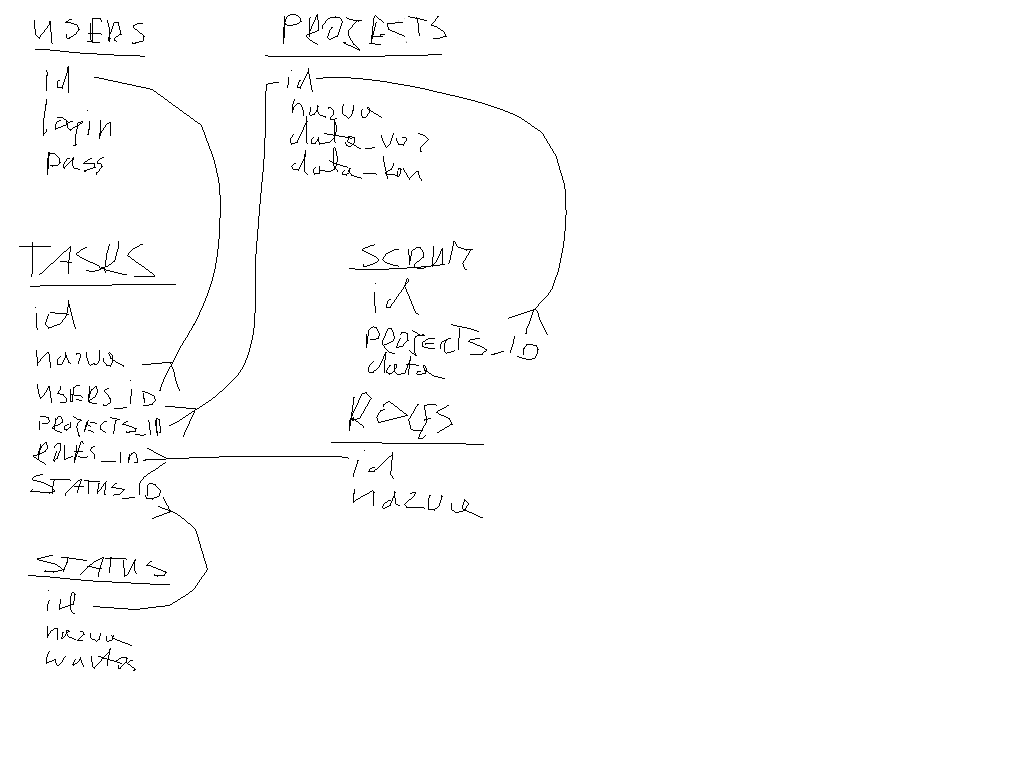 USERS
id
login
pass
PROJECTS
id
nazwa
data_roz
data_kon
TASKS
id
nazwa
USERS_ID
PROJECTS_ID
ROLES_ID
STATUS_ID
SCRUM
id
PROJECTS_ID
data
ROLES
id
nazwa
STATUS
id
nazwa
wartos